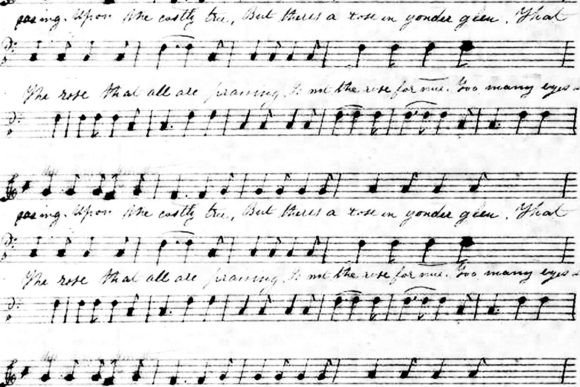 gazing. Upon the costly tree, But there's a rose in yonder glen. That
The rose that all are praising, Is not the rose for me. Too many eyes
gazing. Upon the costly tree, But there's a rose in yonder glen. That
The rose that all are praising, Is not the rose for me. Too many eyes